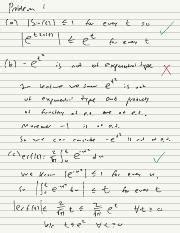 Problem 1
(a) |Sin(t)| ≤ 1 for every t so
|e^{t sin t}| ≤ e^t for every t
(b) -e^{t²} is not of exponential type
In class we saw e^{t²} is not
of exponential type but products
of functions of e.t. are of e.t.
Moreover -1 is of e.t.
So we can conclude -e^{t²} is not of e.t.
(c) erf(t) = 2/√π ∫₀ᵗ e^{-u²} du
We know |e^{-u²}| ≤ 1 for every u,
So |∫₀ᵗ e^{-u²} du| ≤ t for every t
|erf(t)| ≤ 2/√π t ≤ 2/√π e^t ∀ t ≥ 0
b/c t ≤ e^t ∀ t ≥ 0